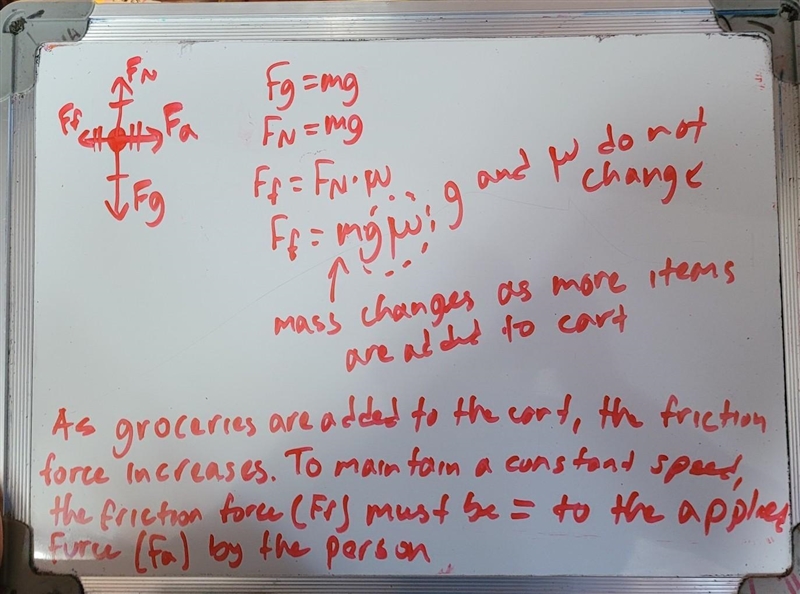 FN
Ff
Fa
Fg
Fg = mg
FN = mg
Ff = FN · μ
Ff = mgμ; g and μ do not change
mass changes as more items
are added to cart
As groceries are added to the cart, the friction
force increases. To maintain a constant speed,
the friction force (Ff) must be = to the applied
furce (Fa) by the person